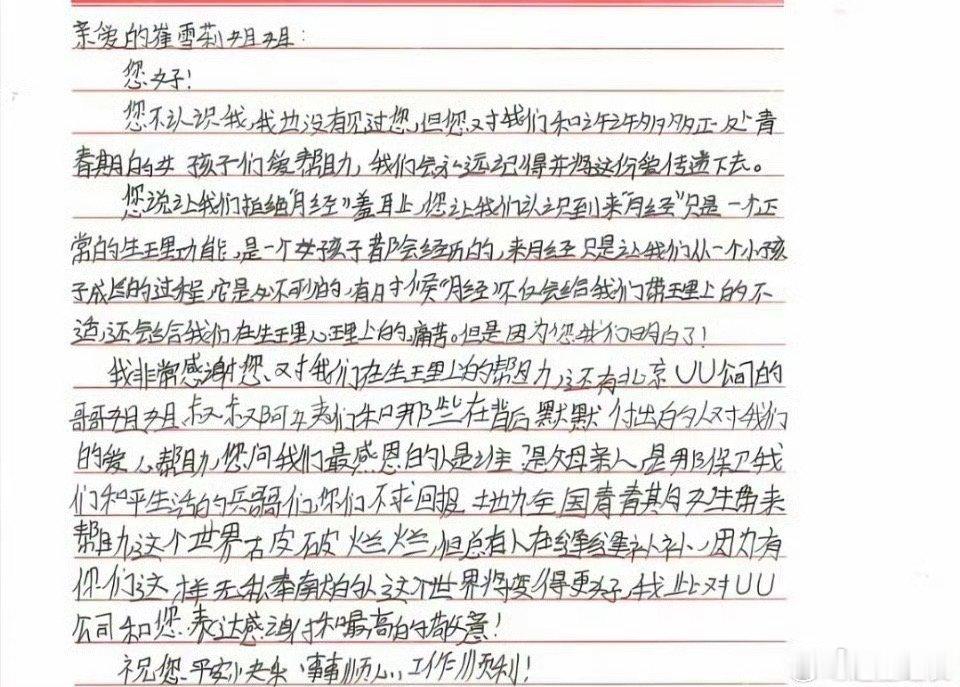 亲爱的崔雪莉姐姐：
您好！
您不认识我，我也没有见过您，但您对我们和许许多多正处青
春期的女孩子们爱帮助，我们会永远记得并将这份爱传递下去。
您说让我们拒绝"月经"羞耻，您让我们认识到来"月经"只是一个正
常的生理功能，是一个女孩子都会经历的，来月经只是让我们从一个小孩
子成长的过程，它是必不可少的，有时候"月经"不仅会给我们带理上的不
适，还会给我们在生理心理上的痛苦。但是因为您我们明白了！
我非常感谢您、对我们在生理上的帮助，还有北京UU公司的
哥哥姐姐、叔叔阿姨们和那些在背后默默付出的人对我们
的爱心帮助，您问我们最感恩的人是 是父母亲人，是那保卫我
们和平生活的兵哥们，你们不求回报 地为全国青春期女生带来
帮助，这个世界古皮破烂烂，但总有人在缝缝补补，因为有
你们这样无私奉献的人这个世界将变得更好，我 此对UU
公司和您表达感谢和最高的敬意！
祝您平安快乐 事事顺心，工作顺利！